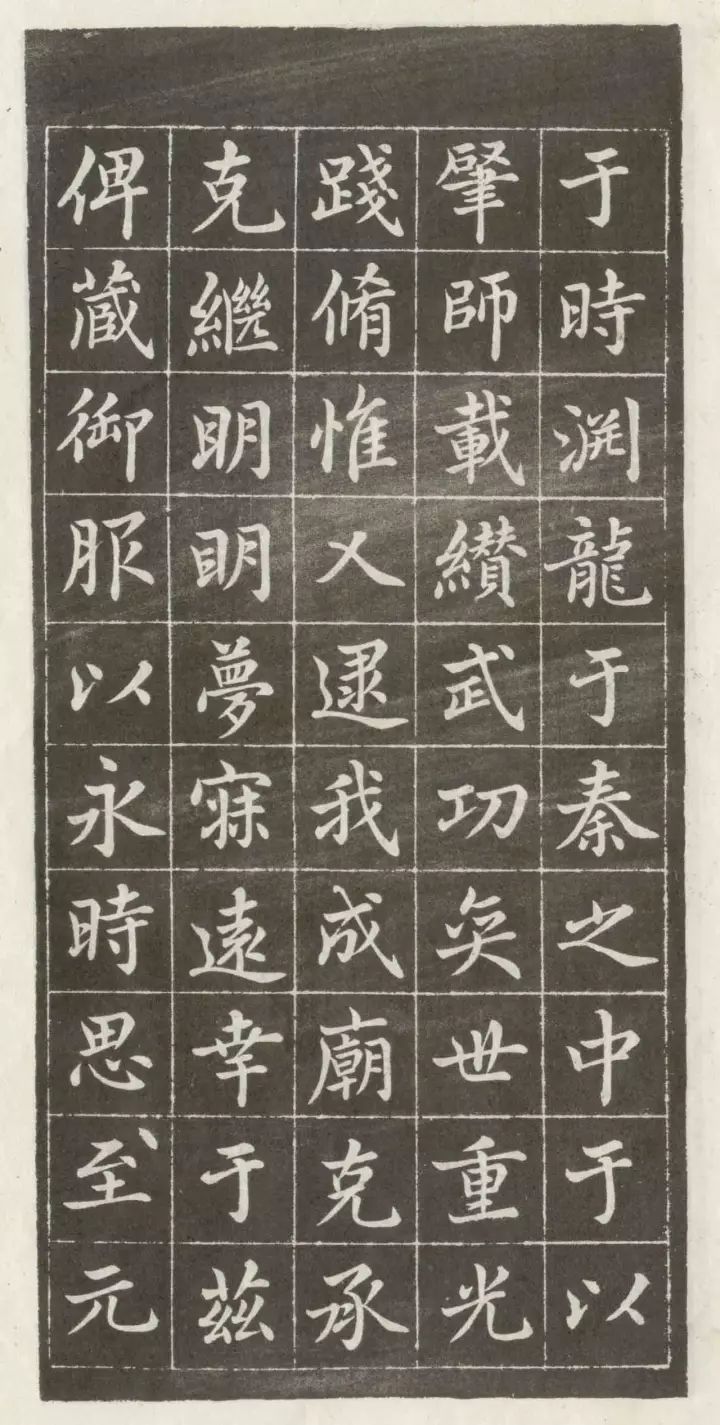 于時渊龍于秦之中于以
肇師載纘武功奕世重光
踐脩惟乂逮我成廟克承
克繼明明夢寐遠幸于茲
俾蔵御服以永時思至元